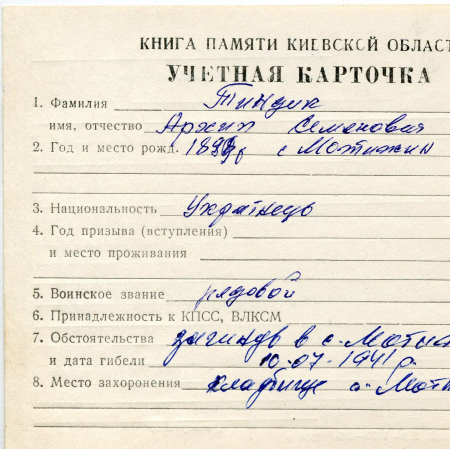 КНИГА ПАМЯТИ КИЕВСКОЙ ОБЛАСТ
УЧЕТНАЯ КАРТОЧКА
1. Фамилия Тиндик
имя, отчество Архип Семенович
2. Год и место рожд. с Мотижин
3. Национальность Украïнець
4. Год призыва (вступления)
и место проживания
5. Воинское звание рядовой
6. Принадлежность к КПСС, ВЛКСМ
7. Обстоятельства загинув в с. Мотиж
и дата гибели 10.07.1941 р
8. Место захоронения кладбище с. Моти